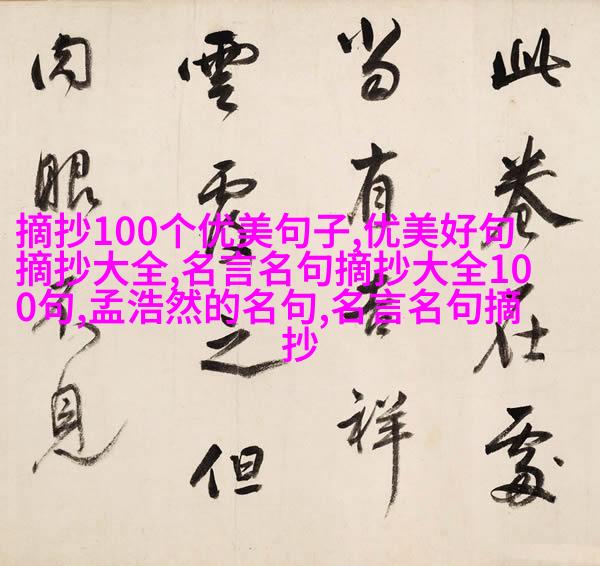 此卷在處
當有吉祥
雲覆之但
肉眼不見
摘抄100个优美句子,优美好句
摘抄大全,名言名句摘抄大全10
0句,孟浩然的名句,名言名句摘
抄